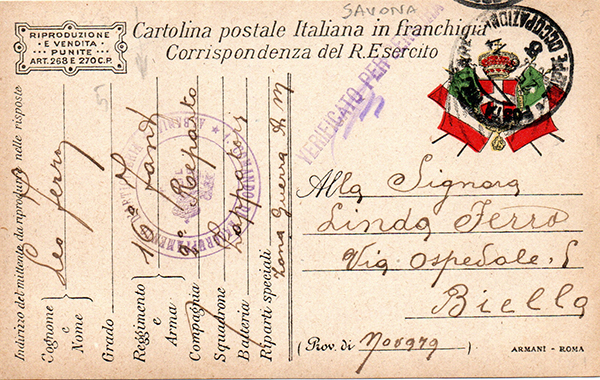 SAVONA
RIPRODUZIONE
E VENDITA
PUNITE
ART. 268 E 270 C.P.
Cartolina postale Italiana in franchigia
Corrispondenza del R. Esercito
VERIFICATO PER CENSURA
Indirizzo del mittente, da riprodursi nelle risposte
Cognome
e
Nome
Leo Ferro
Grado
Reggimento
e
Arma
Fant
Compagnia
Reparto
Squadrone
Batteria
Zappatori
Riparti speciali
Zona Guerra
Alla Signora
Linda Ferro
Via Ospedale, 5
Biella
(Prov. di Novara )
ARMANI - ROMA